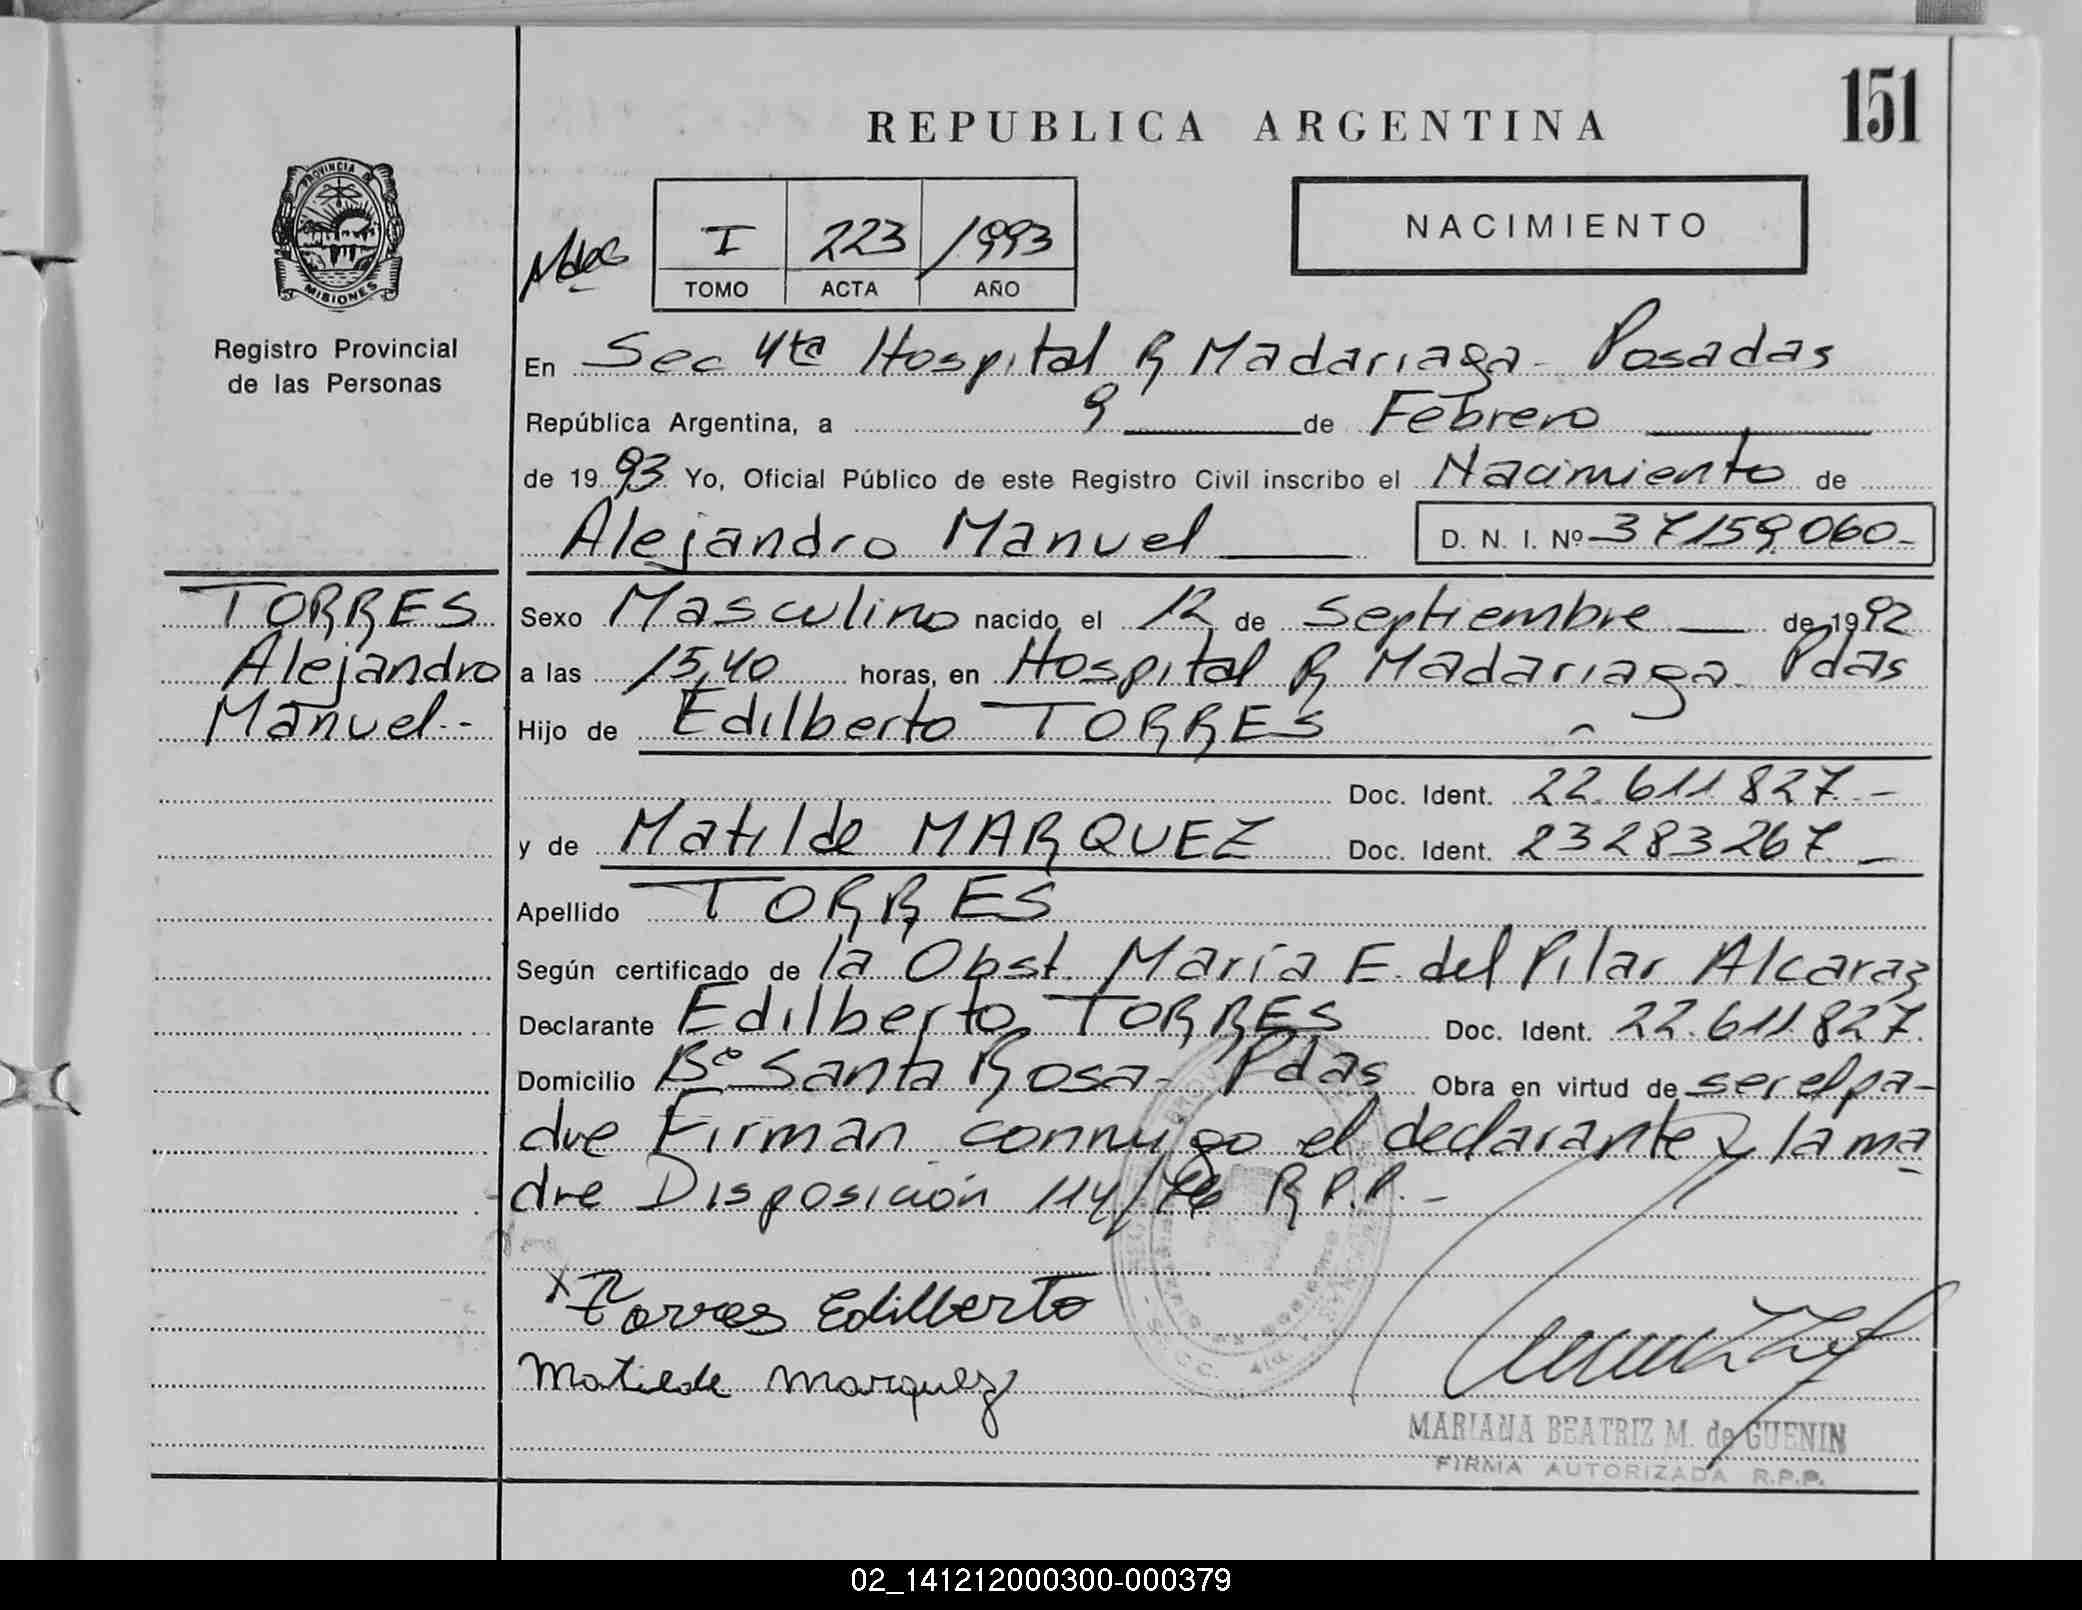 151
REPUBLICA ARGENTINA
PROVINCIA DE
MISIONES
Registro Provincial
de las Personas
I 223 /1993
TOMO ACTA AÑO
NACIMIENTO
En Sec 4ta Hospital R Madariaga - Posadas
República Argentina, a 9 de Febrero
de 1993 Yo, Oficial Público de este Registro Civil inscribo el Nacimiento de
Alejandro Manuel D. N. I. Nº 37159.060-
TORRES
Alejandro
Manuel.-
Sexo Masculino nacido el 12 de Septiembre de 1992
a las 15,40 horas, en Hospital R Madariaga - Pdas
Hijo de Edilberto TORRES
Doc. Ident. 22.611.827.-
y de Matilde MARQUEZ Doc. Ident. 23283267.-
Apellido TORRES
Según certificado de la Obst. María E. del Pilar Alcaraz
Declarante Edilberto TORRES Doc. Ident. 22.611.827.
Domicilio Bº Santa Rosa - Pdas Obra en virtud de ser el pa-
dre Firman conmigo el declarante y la ma
dre Disposición 114/76 R.P.P.-
x Torres Edilberto
Matilde Marquez
MARIANA BEATRIZ M. de GUENIN
FIRMA AUTORIZADA R.P.P.
02_141212000300-000379